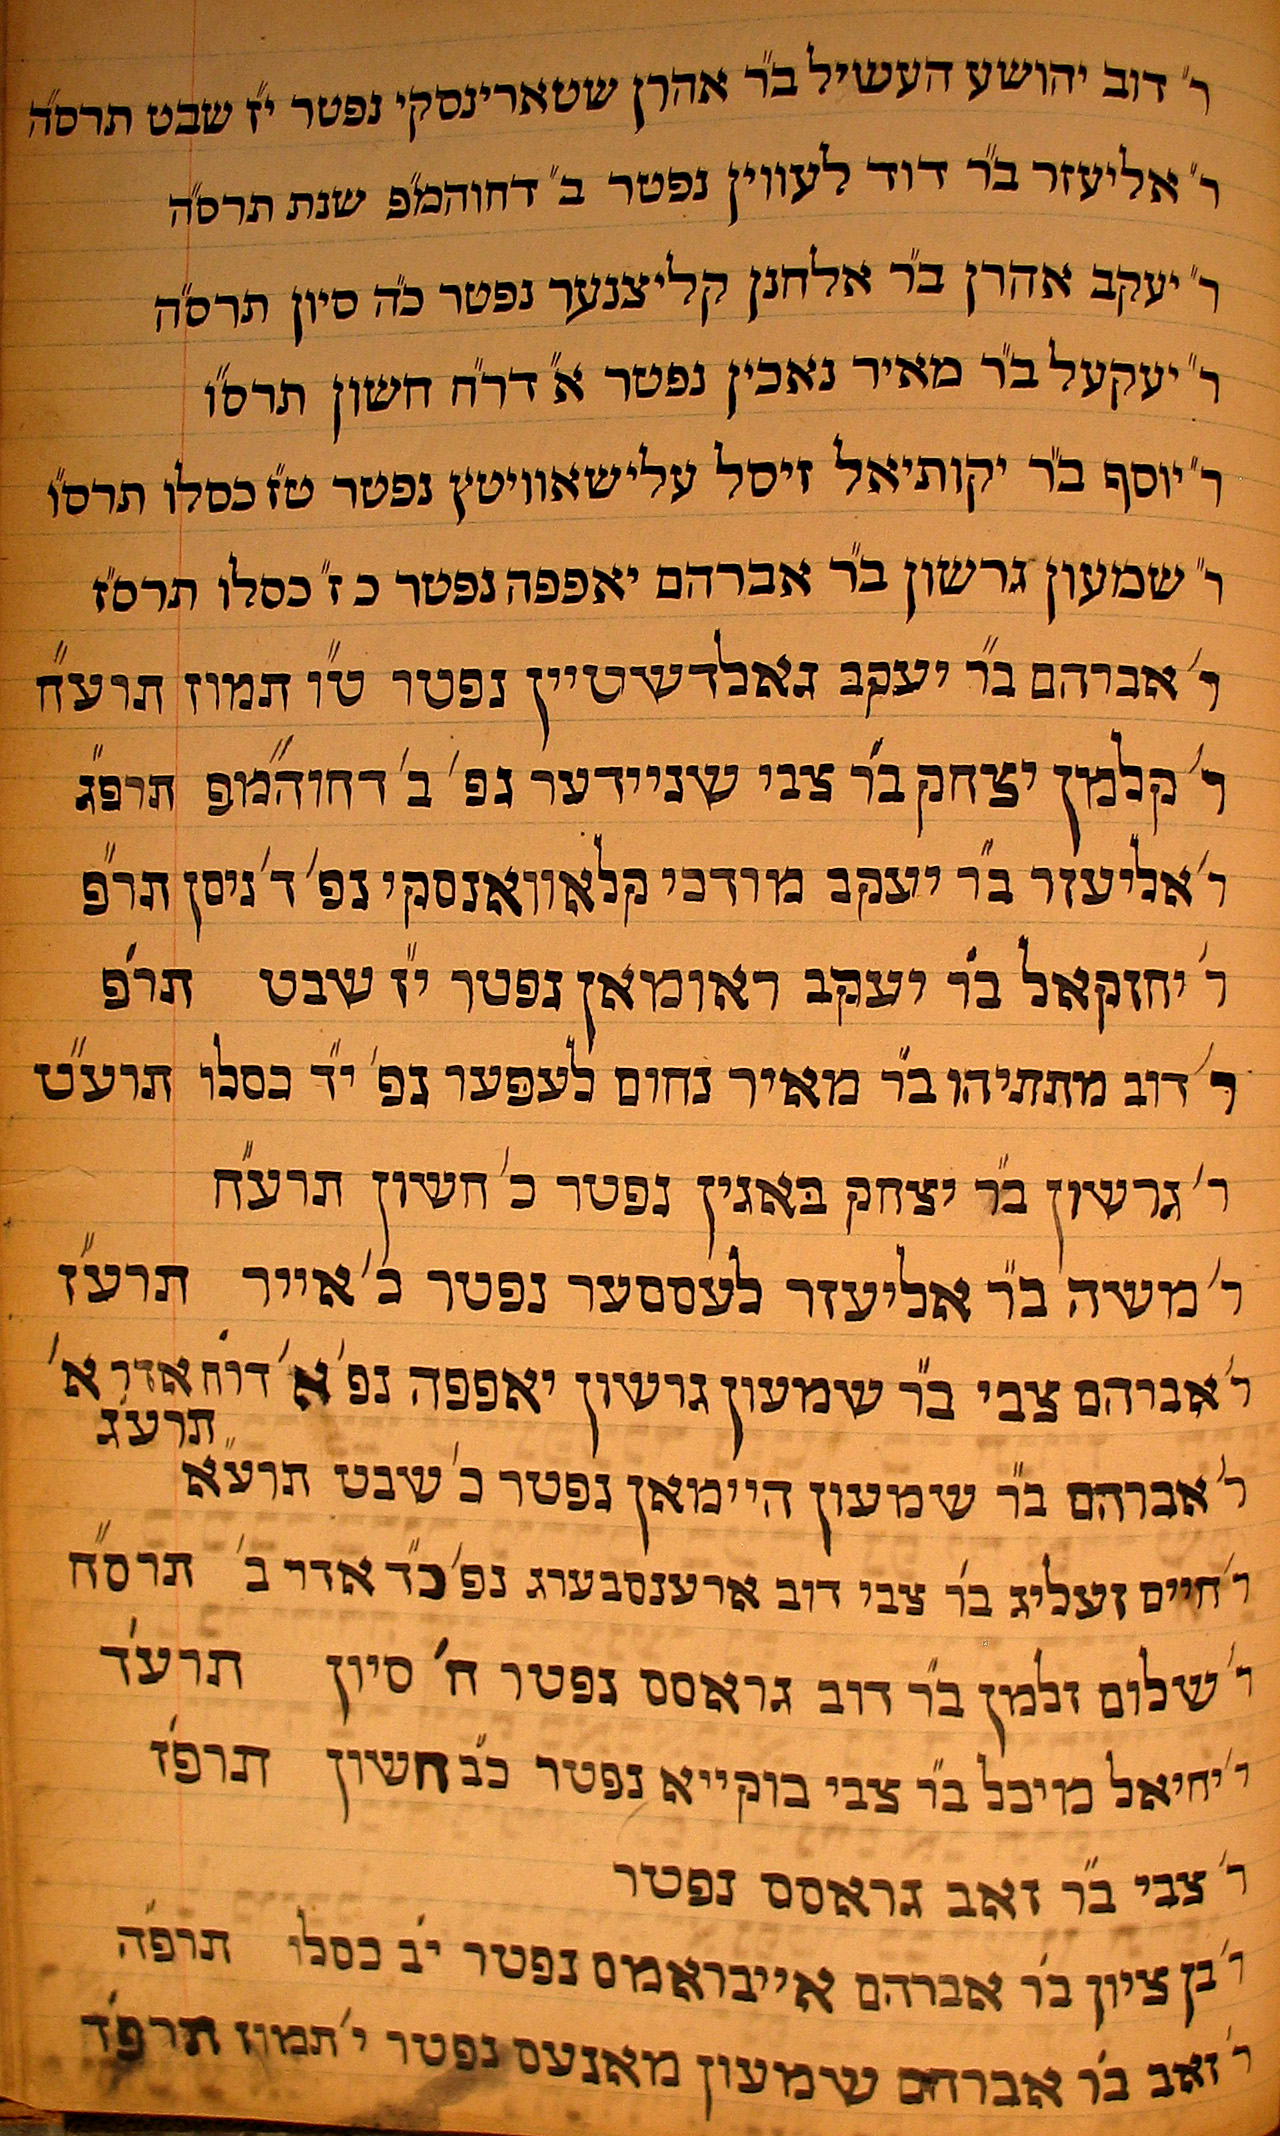 ר״ דוב יהושע העשיל ב״ר אהרן שטארינסקי נפטר י״ז שבט תרס״ה
ר״ אליעזר ב״ר דוד לעווין נפטר ב״ דחוהמ״פ שנת תרס״ה
ר״ יעקב אהרן ב״ר אלחנן קליצנער נפטר כ״ה סיון תרס״ה
ר״ יעקעל ב״ר מאיר נאכין נפטר א״ דר״ח חשון תרס״ו
ר״ יוסף ב״ר יקותיאל זיסל עלישאוויטץ נפטר ט״ז כסלו תרס״ו
ר״ שמעון גרשון ב״ר אברהם יאפפה נפטר כ ז״ כסלו תרס״ז
ר׳ אברהם ב״ר יעקב גאלדשטיין נפטר ט״ו תמוז תרע״ח
ר׳ קלמן יצחק ב׳ר צבי שניידער נפ׳ ב׳ דחוה״מפ תרפ״ג
ר׳ אליעזר ב״ר יעקב מרדכי קלאוואנסקי נפ׳ ד׳ ניסן תר״פ
ר׳ יחזקאל ב׳ר יעקב ראומאן נפטר י״ז שבט תר׳פ
ר׳ דוב מתתיהו ב״ר מאיר נחום לעפער נפ׳ י״ד כסלו תרע״ט
ר׳ גרשון ב״ר יצחק באגין נפטר כ׳ חשון תרע״ח
ר׳ משה ב״ר אליעזר לעססער נפטר כ׳ אייר תרע״ז
ר׳ אברהם צבי ב״ר שמעון גרשון יאפפה נפ׳ א׳ דר׳ח אדר א׳
תרע׳ג
ר׳ אברהם ב״ר שמעון היימאן נפטר כ׳ שבט תרע״א
ר׳ חיים זעליג ב׳ר צבי דוב ארענסבערג נפ׳ כ״ד אדר ב׳ תרס״ח
ר׳ שלום זלמן ב״ר דוב גראסס נפטר ח׳ סיון תרע׳ד
ר׳ יחיאל מיכל ב״ר צבי בוקייא נפטר כ״ב חשון תרפ׳ז
ר׳ צבי ב״ר זאב גראסס נפטר
ר׳ בן ציון ב׳ר אברהם אייבראמס נפטר י׳ב כסלו תרפ״ה
ר׳ זאב ב׳ר אברהם שמעון מאנעס נפטר י׳ תמוז תרפ׳ד